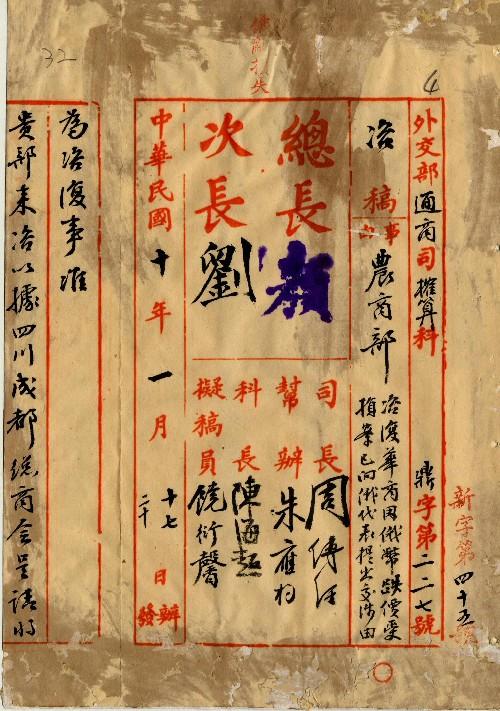 32
4
外交部通商司榷算科
鼎字第二二七號
新字第四十五號
咨
稿
事由
農商部
咨復華商因俄幣跌價受
損案已向俄代表提出交涉由
總長 顏
次長 劉
司長 周傳經
幫辦 朱應杓
科長 陳海超
擬稿員 饒衍馨
中華民國十年一月
十七
二十
日
辦
發
為咨復事准
貴部來咨以據四川成都總商會呈請將